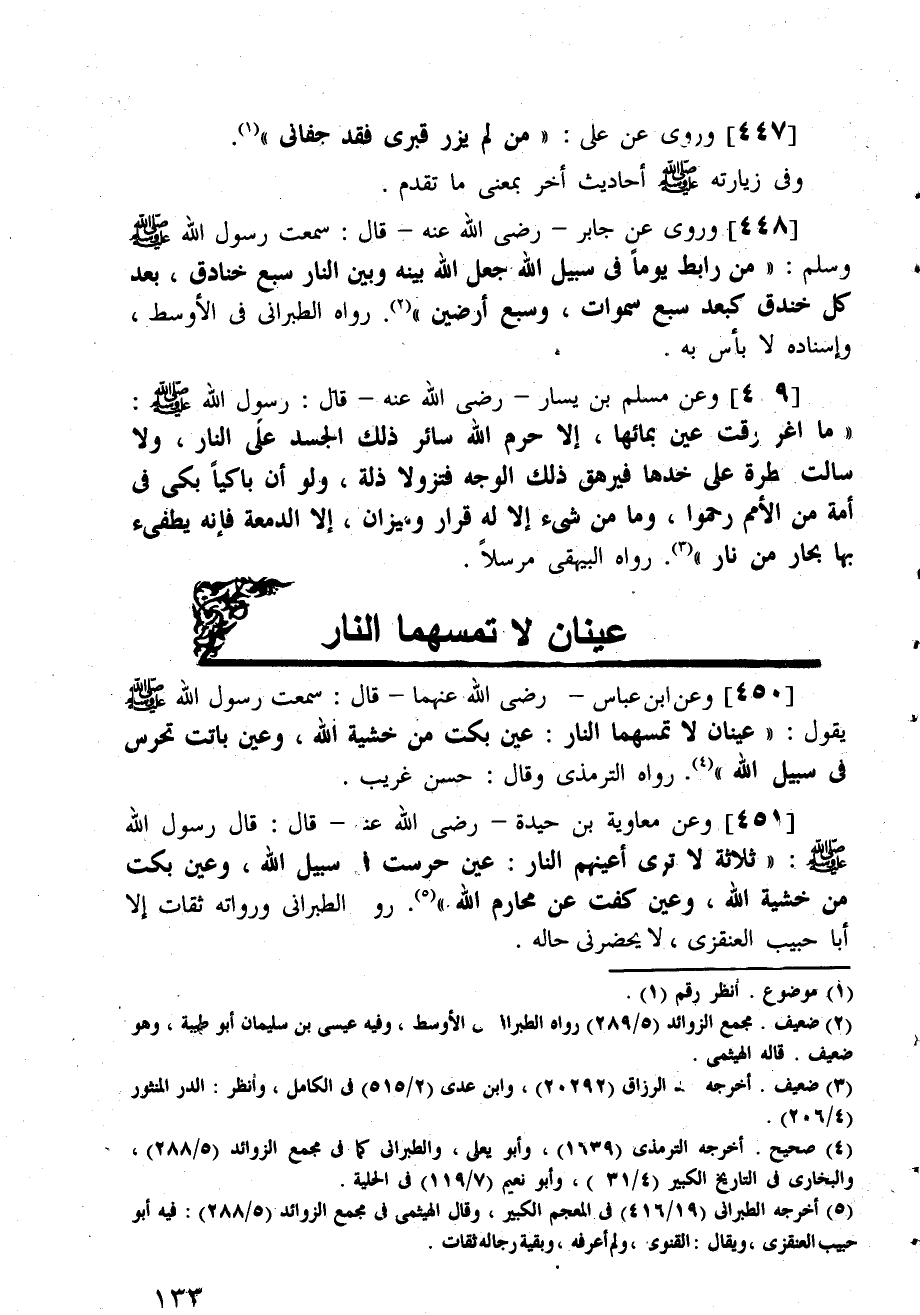 [٤٤٧] وروى عن على : « من لم يزر قبرى فقد جفانى »(١).
وفى زيارته ﷺ أحاديث أخر بمعنى ما تقدم .
[٤٤٨] وروى عن جابر – رضى الله عنه – قال : سمعت رسول الله ﷺ
وسلم : « من رابط يوماً فى سبيل الله جعل الله بينه وبين النار سبع خنادق ، بعد
كل خندق كبعد سبع سموات ، وسبع أرضين »(٢). رواه الطبرانى فى الأوسط ،
وإسناده لا بأس به .
[٤ ٩] وعن مسلم بن يسار – رضى الله عنه – قال : رسول الله ﷺ :
« ما اغر رقت عين بمائها ، إلا حرم الله سائر ذلك الجسد على النار ، ولا
سالت طرة على خدها فيرهق ذلك الوجه فتزولا ذلة ، ولو أن باكياً بكى فى
أمة من الأمم رحموا ، وما من شىء إلا له قرار وميزان ، إلا الدمعة فإنه يطفىء
بها بحار من نار »(٣). رواه البيهقى مرسلاً .
عينان لا تمسهما النار
[٤٥٠] وعن ابن عباس – رضى الله عنهما – قال : سمعت رسول الله ﷺ
يقول : « عينان لا تمسهما النار : عين بكت من خشية الله ، وعين باتت تحرس
فى سبيل الله »(٤). رواه الترمذى وقال : حسن غريب .
[٤٥١] وعن معاوية بن حيدة – رضى الله عنه – قال : قال رسول الله
ﷺ : « ثلاثة لا ترى أعينهم النار : عين حرست سبيل الله ، وعين بكت
من خشية الله ، وعين كفت عن محارم الله »(٥). رو الطبرانى ورواته ثقات إلا
أبا حبيب العنقزى ، لا يحضرنى حاله .
(١) موضوع . أنظر رقم (١) .
(٢) ضعيف . مجمع الزوائد (٢٨٩/٥) رواه الطبرا الأوسط ، وفيه عيسى بن سليمان أبو طيبة ، وهو
ضعيف . قاله الهيثمى .
(٣) ضعيف . أخرجه الرزاق (٢٠٢٩٢) ، وابن عدى (٥١٥/٢) فى الكامل ، وأنظر : الدر المنثور
(٢٠٦/٤) .
(٤) صحيح . أخرجه الترمذى (١٦٣٩) ، وأبو يعلى ، والطبرانى كما فى مجمع الزوائد (٢٨٨/٥) ،
والبخارى فى التاريخ الكبير (٣١/٤ ) ، وأبو نعيم (١١٩/٧) فى الحلية .
(٥) أخرجه الطبرانى (٤١٦/١٩) فى المعجم الكبير ، وقال الهيثمى فى مجمع الزوائد (٢٨٨/٥) : فيه أبو
حبيب العنقزى ، ويقال : القنوى ، ولم أعرفه ، وبقية رجاله ثقات .
١٣٣